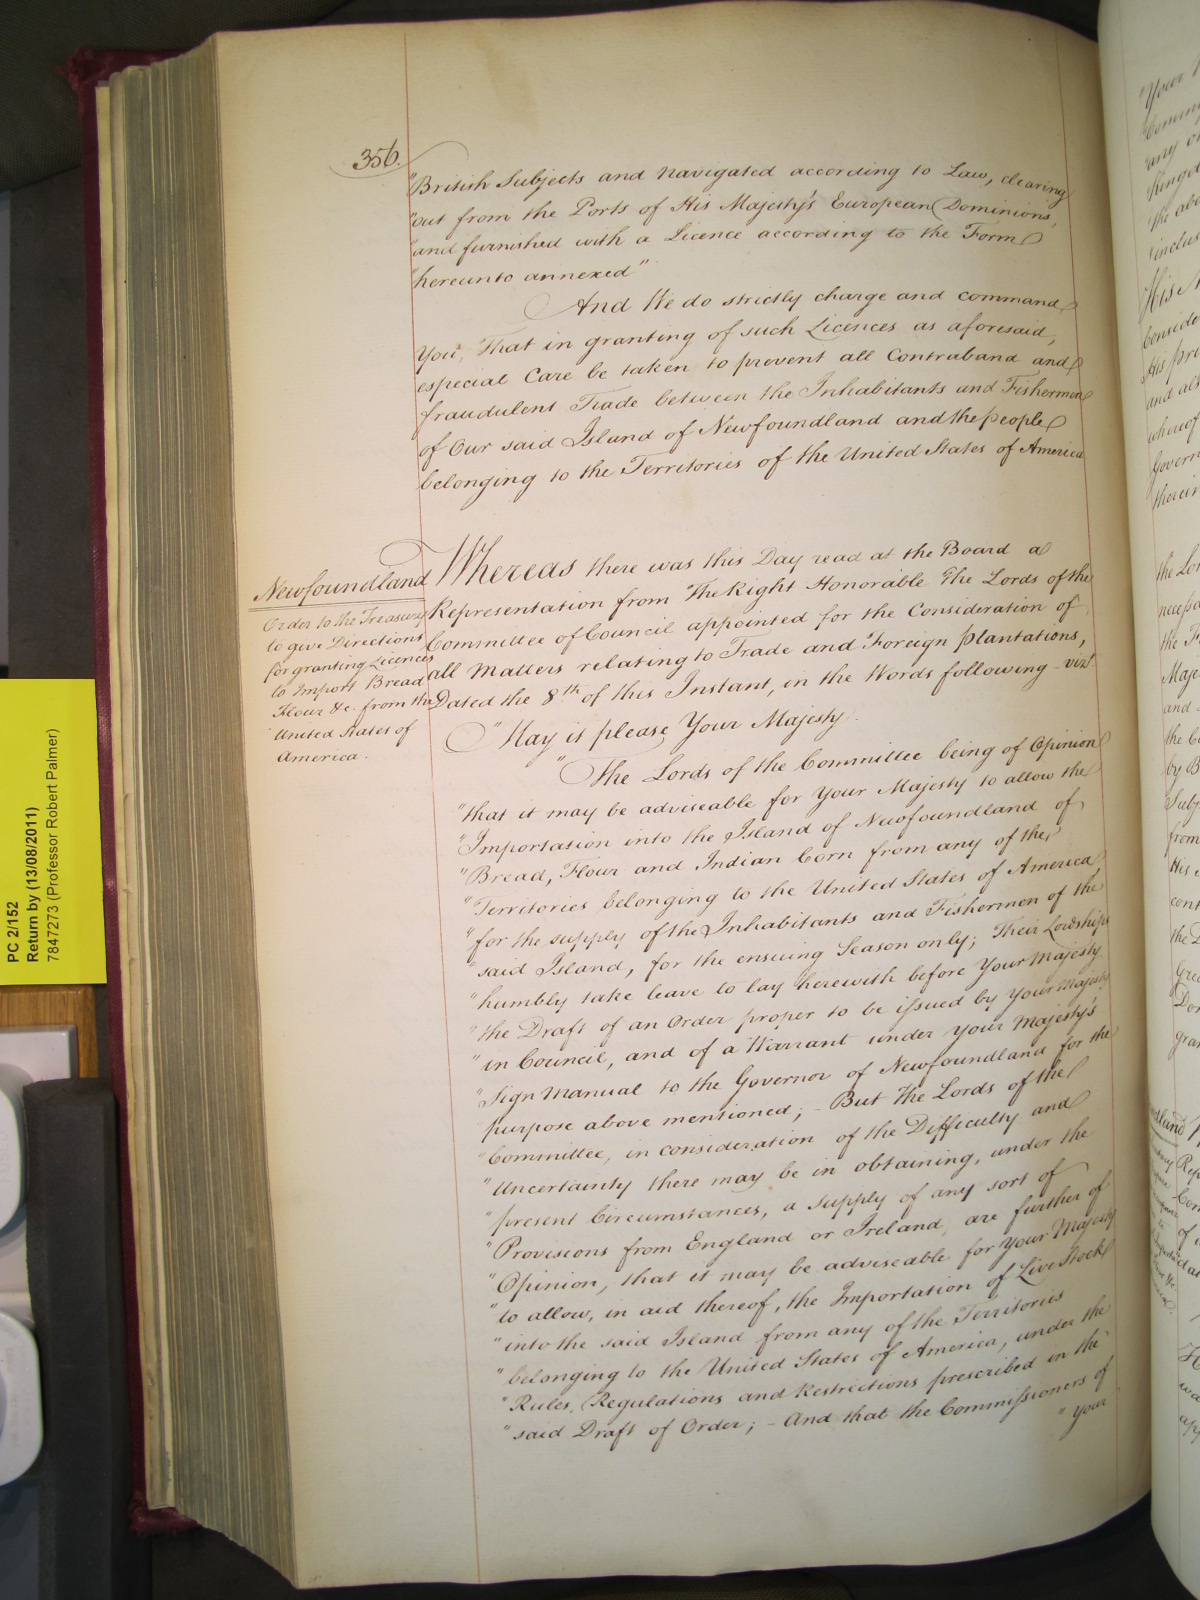 356.
"British Subjects and navigated according to Law, clearing
"out from the Ports of His Majesty's European Dominions,
"and furnished with a Licence according to the Form
"hereunto annexed"
And We do strictly charge and command
You, That in granting of such Licences as aforesaid,
especial Care be taken to prevent all Contraband and
fraudulent Trade between the Inhabitants and Fishermen
of Our said Island of Newfoundland and the people
belonging to the Territories of the United States of America
Newfoundland
Order to the Treasury
to give Directions
for granting Licences
to Import Bread
Flour &c. from the
United States of
America.
Whereas there was this Day read at the Board a
Representation from The Right Honorable The Lords of the
Committee of Council appointed for the Consideration of
all Matters relating to Trade and Foreign Plantations,
Dated the 8th of this Instant, in the Words following - vizt.
"May it please Your Majesty.
"The Lords of the Committee being of Opinion
"that it may be adviseable for Your Majesty to allow the
"Importation into the Island of Newfoundland of
"Bread, Flour and Indian Corn from any of the
"Territories belonging to the United States of America
"for the supply of the Inhabitants and Fishermen of the
"said Island, for the ensuing Season only; Their Lordships
"humbly take leave to lay herewith before Your Majesty
"the Draft of an Order proper to be issued by Your Majesty
"in Council, and of a Warrant under Your Majesty's
"Sign Manual to the Governor of Newfoundland for the
"purpose above mentioned; - But The Lords of the
"Committee, in consideration of the Difficulty and
"Uncertainty there may be in obtaining, under the
"present Circumstances, a supply of any sort of
"Provisions from England or Ireland, are further of
"Opinion, that it may be adviseable for Your Majesty
"to allow, in aid thereof, the Importation of Live Stock
"into the said Island from any of the Territories
"belonging to the United States of America, under the
"Rules, Regulations and Restrictions prescribed in the
"said Draft of Order; - And that the Commissioners of
"Your
PC 2/152
Return by (13/08/2011)
7847273 (Professor Robert Palmer)